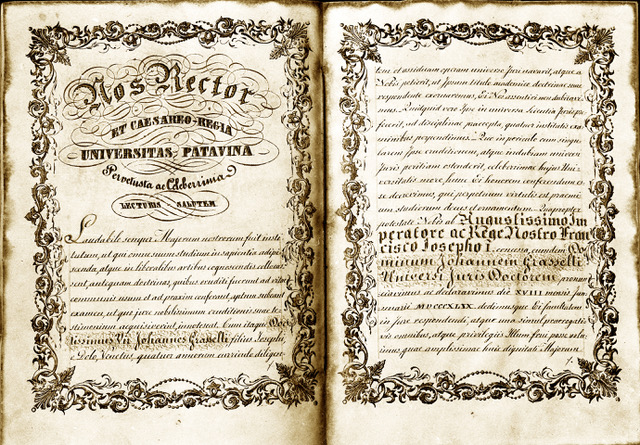 Nos Rector
ET CAESAREO-REGIA
UNIVERSITAS PATAVINA
Pervetusta ac Celeberrima
LECTURIS SALUTEM
Laudabile semper Majorum nostrorum fuit insti-
tutum, ut qui omne suum studium in sapientia adipi-
scenda, atque in liberalibus artibus capescendis collocas-
sent, antequam doctrinas, quibus eruditi fuerunt ad vitae
communis usum et ad praxim conferant, aptum subeant
examen, ut quo jure nobilissimam conditionis suae te-
stimonium acquisiverint, innotescat. Cum itaque
Johannes Grasselli filius Josephi
Venetus, quatuor annorum curriculo diligen-
tem et assiduam operam universo Juri navarit, atque a
Nobis petierit, ut Ipsum titulo academico doctrinae suae
respondente exornaremus, Ei Nos assentiri non dubitavi-
mus. Quidquid vero Ipse in universa scientia
fecerit, ad disciplinae praecepta, quatuor institutis exa-
minibus perpendimus. Quae in periculo cum singu-
larem Ipse eruditionem, atque indubiam universi
Juris peritiam ostenderit, celeberrimae hujus Uni-
versitatis more, hunc Ei honorem conferendum es-
se decrevimus, qui perpetuum virtutis est praemi-
um studiorum decus et ornamentum. Quapropter
potestate Nobis ab Augustissimo Im-
peratore ac Rege Nostro Fran-
cisco Josepho I. concessa, eumdem Do-
minum Johannem Grasselli
Universi Juris Doctorem pronun-
ciavimus ac declaravimus die XVIII mensis Jan-
uarii MDCCCLIX. dedimusque Ei facultatem
in jure respondendi, atque una simul praerogati-
vis omnibus, atque privilegiis Illum frui posse volu-
imus, quae amplissimae huic dignitati Majorum